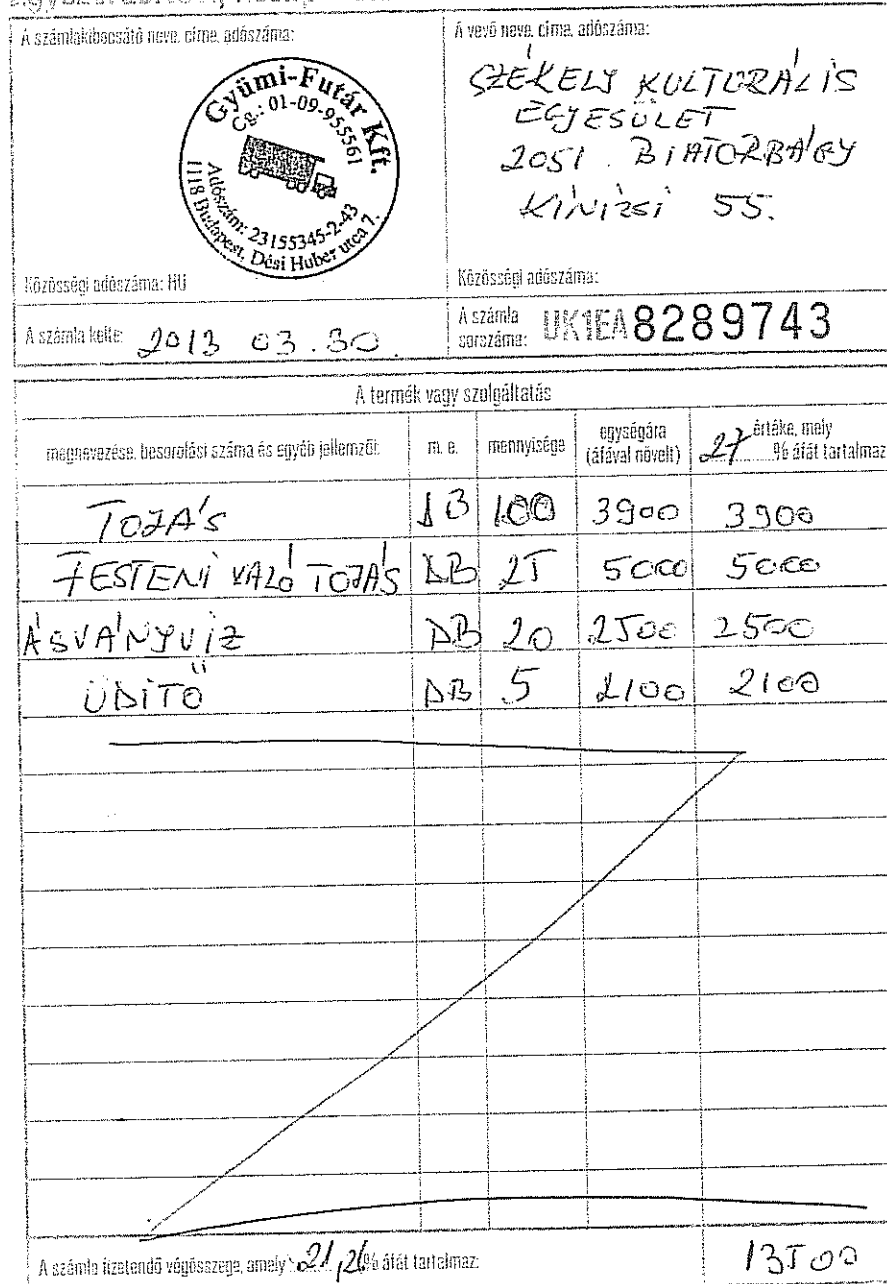 A számlakibocsátó neve, címe, adószáma:
Gyümi-Futár Kft.
Cg.: 01-09-955561
Adószám: 23155345-2-43
1118 Budapest, Dési Huber utca 7.
Közösségi adószáma: HU
A vevő neve, címe, adószáma:
SZÉKELY KULTURÁLIS
EGYESÜLET
2051. BIATORBÁGY
KINIZSI 55.
Közösségi adószáma:
A számla kelte: 2013 03.30.
A számla
sorszáma: UK1EA8289743
A termék vagy szolgáltatás
megnevezése, besorolási száma és egyéb jellemzői: m. e. mennyisége egységára (áfával növelt) 27 értéke, mely % áfát tartalmaz
TOJÁS DB 100 3900 3900
FESTENI VALÓ TOJÁS DB 25 5000 5000
ÁSVÁNYVIZ DB 20 2500 2500
ÜDITŐ DB 5 2100 2100
A számla fizetendő végösszege, amely 21,26% áfát tartalmaz: 13500